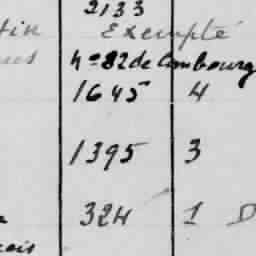 2133
Exempté
nº 82 de Combourg
1645 4
1395 3
324 1 D